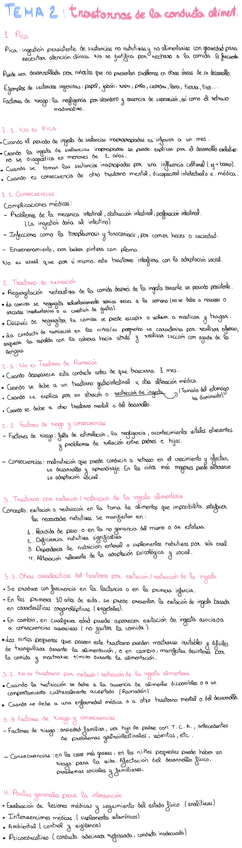 TEMA 2: Trastornos de la conducta aliment.
1. Pica
Pica: ingestión persistente de sustancias no nutritivas y no alimentarias con gravedad para
necesitar atención clínica. No se justifica por rechazo a la comida. Es frecuente.
Puede ser desarrollada por niños/as que no presentan problemas en otras áreas de su desarrollo.
Ejemplos de sustancias ingeridas: papel, jabón, lana, pelo, cuerdas, tierra, tizas...
Factores de riesgo: la negligencia por abandono y ausencia de supervisión, así como el retraso
madurativo.
1.1. No es PICA
• Cuando el periodo de ingesta de sustancias inapropiadas es inferior a un mes.
• Cuando la ingesta de sustancias inapropiadas se puede explicar por el desarrollo evolutivo
no se diagnostica en menores de 2 años.
• Cuando se toman las sustancias inapropiadas por una influencia cultural
• Cuando es consecuencia de otro trastorno mental, discapacidad intelectual o médica.
1.2. Consecuencias
Complicaciones médicas:
- Problemas de la mecánica intestinal, obstrucción intestinal, perforación intestinal.
(La ingestión daña al intestino)
- Infecciones como la toxoplasmosis y toxocariasis, por comer heces o suciedad.
- Envenenamiento, por beber pintura con plomo.
No es usual que por sí mismo, este trastorno interfiera con la adaptación social.
2. Trastorno de rumiación
• Regurgitación reiterativa de la comida después de la ingesta durante un periodo persistente.
• La comida se regurgita voluntariamente varias veces a la semana (no se debe a náuseas o
arcadas involuntarias o cuestión de ganas).
• Después de regurgitar, la comida se puede escupir o volver a masticar y tragar.
• La conducta de rumiación en los niños/as pequeños se caracteriza por realizar
arquear la espalda con la cabeza hacia atrás y realizar succión con ayuda de la
lengua.
2.1. No es Trastorno de Rumiación
• Cuando desaparece esta conducta antes de que trascurra 1 mes.
• Cuando se debe a un trastorno gastrointestinal u otra alteración médica.
• Cuando se explica por un atracón o restricción de ingesta
(Tamaño del estómago
ha disminuido)
• Cuando se debe a otro trastorno mental o del desarrollo.
2.2. Factores de riesgo y consecuencias
- Factores de riesgo: falta de estimulación, la negligencia, acontecimientos vitales estresantes
y problemas de relación entre padres e hijos.
- Consecuencias: malnutrición que puede conducir a retraso en el crecimiento y afectar
su desarrollo y aprendizaje. En los niños más mayores puede alterarse
su adaptación social.
3. Trastorno por evitación / restricción de la ingesta alimentaria
Concepto: evitación o restricción en la toma de alimentos que imposibilita satisfacer
las necesidades nutritivas. Se manifiestan en:
1. Pérdida de peso o en la no ganancia del mismo o de estatura.
2. Deficiencia nutritiva significativa.
3. Dependencia de nutrición enteral o suplementos nutritivos por vía oral.
4. Alteración relevante de la adaptación psicológica y social.
3.1. Otras características del trastorno por evitación / restricción de la ingesta.
• Se produce con frecuencia en la lactancia o en la primera infancia.
• En los primeros 10 años de vida, se puede presentar la evitación de ingesta basada
en características organolépticas (vegetales).
• En cambio, en cualquier edad puede aparecer evitación de ingesta asociada
a consecuencias aversivas (no gusta la comida).
• Los niños pequeños que poseen este trastorno pueden mostrarse irritables y difíciles
de tranquilizar durante la alimentación, o en cambio, manifestar desinterés por
la comida y mostrarse durante la alimentación.
3.2. No es trastorno por evitación / restricción de la ingesta alimentaria
• Cuando la restricción se debe a la ausencia de alimentos disponibles o a un
comportamiento culturalmente aceptado (Ramadán)
• Cuando se debe a una enfermedad médica o a otro trastorno mental o del desarrollo.
3.3. Factores de riesgo y consecuencias
- Factores de riesgo: ansiedad familiar, ser hijo de padres con T.C.A., antecedentes
de problemas gastrointestinales, vómitos, etc.
- Consecuencias: en los casos más graves, en los niños pequeños puede haber un
riesgo para la vida. Afectación del desarrollo físico,
problemas sociales y familiares.
4. Pautas generales para la intervención
• Evaluación de lesiones médicas y seguimiento del estado físico (analíticas)
• Intervenciones médicas (suplementos vitamínicos)
• Ambiental (control y vigilancia)
• Psicoeducativo (conducta adecuada reforzada, conducta inadecuada)